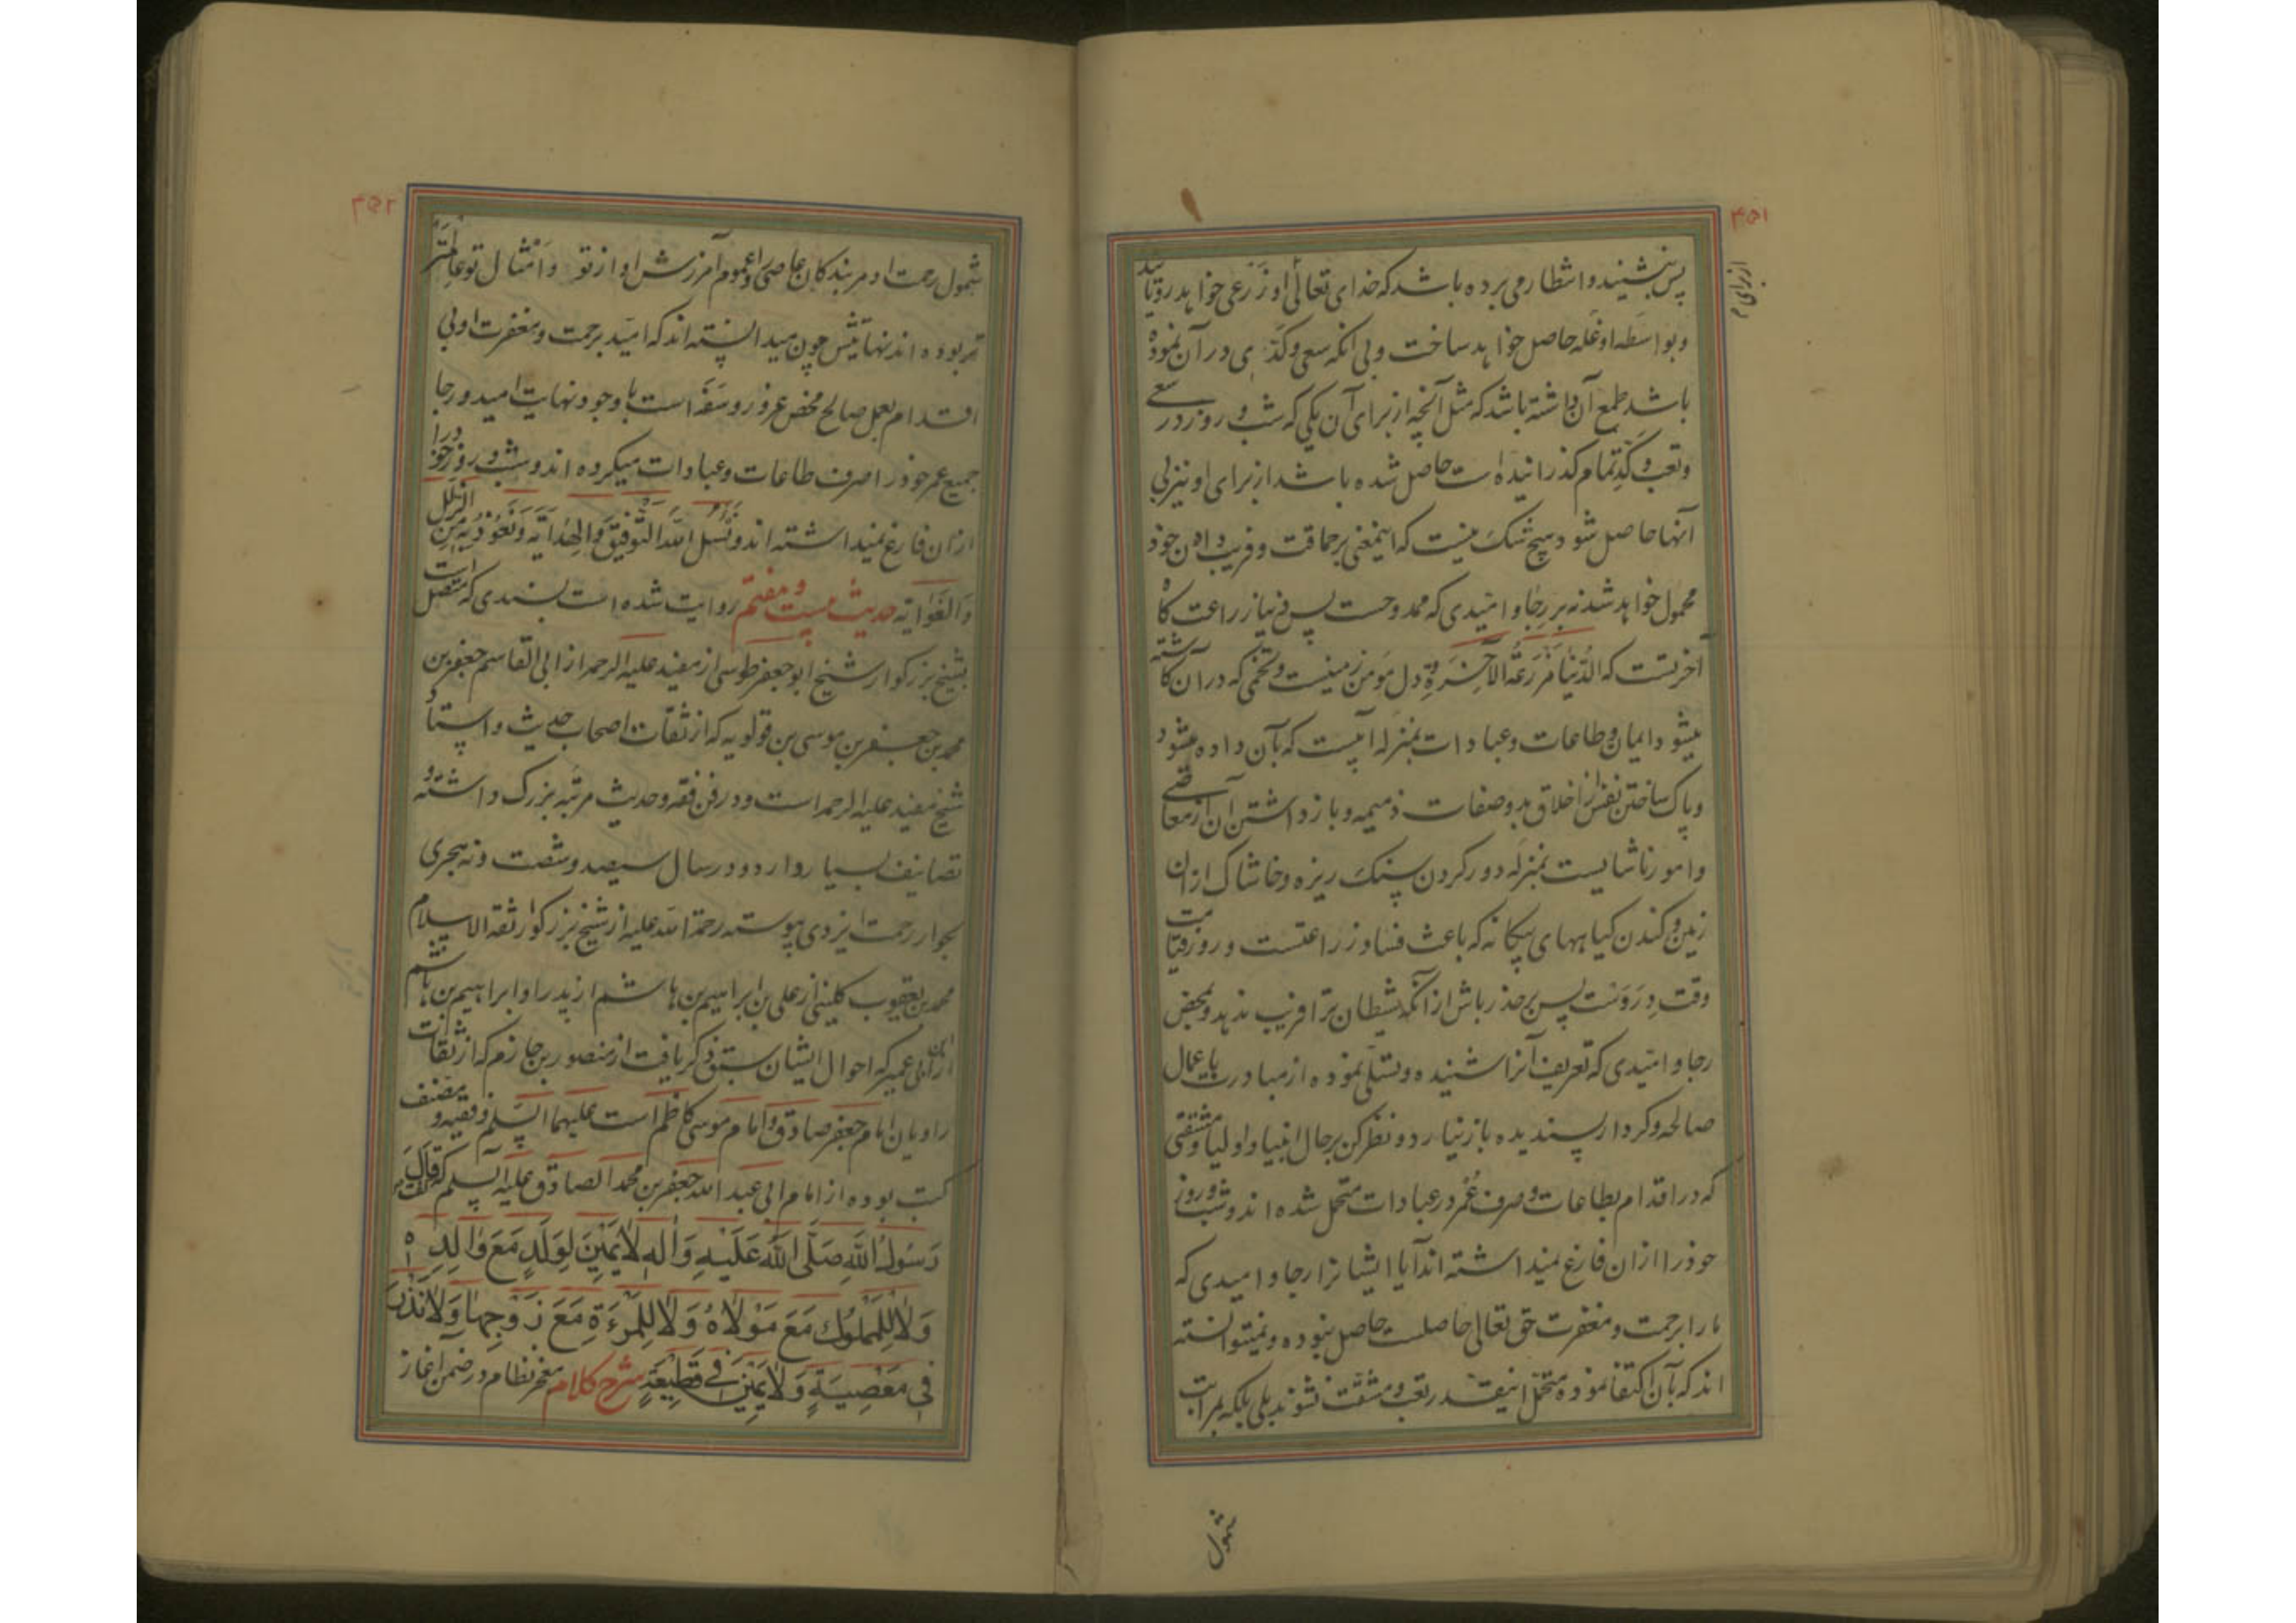 ۴۵۱
پس بنشیند و انتظار می برده باشد که خدای تعالی او زرعی خواهد رویانید
و بواسطه او غله حاصل خواهد ساخت و بی انکه سعی و کدّی در آن نموده
باشد طمع آن داشته باشد که مثل آنچه از برای آن یکی که شب و روز در سعی
و تعب و کدّ تمام کذرانیده است حاصل شده باشد از برای او نیز بی
آنها حاصل شود هیچ شک نیست که اینمعنی بر حماقت و فریب دادن خود
محمول خواهد شد نه بر رجا و امّیدی که ممدوحست پس دنیا زراعت کاه
آخرتست که الدُّنیا مَزرَعَةُ الآخِرَةِ و دل مؤمن زمینست و تخمی که در آن کاشته
میشود ایمان و طاعات و عبادات بمنزله آبیست که بآن داده میشود
و پاک ساختن نفس از اخلاق بد و صفات ذمیمه و باز داشتن آن از معاصی
و امور ناشایست بمنزله دور کردن سنک ریزه و خاشاک ازان
زمین و کندن کیاههای بیکانه که باعث فساد زراعتست و روز قیامت
وقت دِرَوَست پس بر حذر باش از آنکه شیطان ترا فریب ندهد و بمحض
رجا و امّیدی که تعریف آنرا شنیده و تسلّی نموده از مبادرت باعمال
صالحه و کردار پسندیده باز نیارد و نظر کن بر حال انبیا و اولیا و مشقتی
که در اقدام بطاعات و صرف عُمر در عبادات متحمل شده اند و شب و روز
خود را ازان فارغ نمیداشته اند آیا ایشانرا رجا و امیدی که
ما را برحمت و مغفرت حق تعالی حاصلست حاصل نبوده و نمیتوانسته
اند که بآن اکتفا نموده متحمّل اینقدر تعب و مشقت نشوند بلی بلکه بمراتب
شمول
۴۵۲
شمول رحمت او مر بندکان عاصی را و عموم آمرزش او از تو و امثال تو عالمتر
تر بوده اند نهایتش چون میدانسته اند که امّید برحمت و مغفرت او بی
اقدام بعمل صالح محض غرور و سَفَه است با وجود نهایت امید و رجا
جمیع عمر خود را صرف طاعات و عبادات میکرده اند و شب و روز خود را
ازان فارغ نمیداشته اند و نَسئل الله التَّوفیقَ وَالهِدایَةَ وَنَعُوذُ بِهِ مِنَ الزَّلل
وَالغَوایَة حدیث بیست و هفتم روایت شده است بسندی که متصل است
بشیخ بزرکوار شیخ ابو جعفر طوسی از مفید علیه الرحمه از ابی القاسم جعفر بن
محمد بن جعفر بن موسی بن قولویه که از ثقات اصحاب حدیث و استاد
شیخ مفید علیه الرحمه است و در فن فقه و حدیث مرتبه بزرک داشته و
تصانیف بسیار دارد و در سال سیصد و شصت و نه هجری
بجوار رحمت ایزدی پیوسته رحمة الله علیه از شیخ بزرکوار ثقة الاسلام
محمد بن یعقوب کلینی از علی بن ابراهیم بن هاشم از پدر او ابراهیم بن هاشم
از ابن ابی عمیر که احوال ایشان سبق ذکر یافت از منصور بن حازم که از ثقات
راویان امام جعفر صادق و امام موسی کاظم است علیهما السّلم و فقیه و مصنف
کتب بوده از امام ابی عبد الله جعفر بن محمد الصادق علیه السلم که قالَ
رَسُولُ اللهِ صَلَّی اللهُ عَلَیْهِ وَآلِهِ لایَمِینَ لِوَلَدٍ مَعَ والِدِهِ
وَلا لِلْمَمْلُوكِ مَعَ مَوْلاهُ وَلا لِلْمَرْءَةِ مَعَ زَوْجِها وَلا نَذْرَ
فِی مَعْصِیَةٍ وَلا یَمِینَ فِی قَطِیعَةٍ شرح کلام معجز نظام در ضمن آغاز